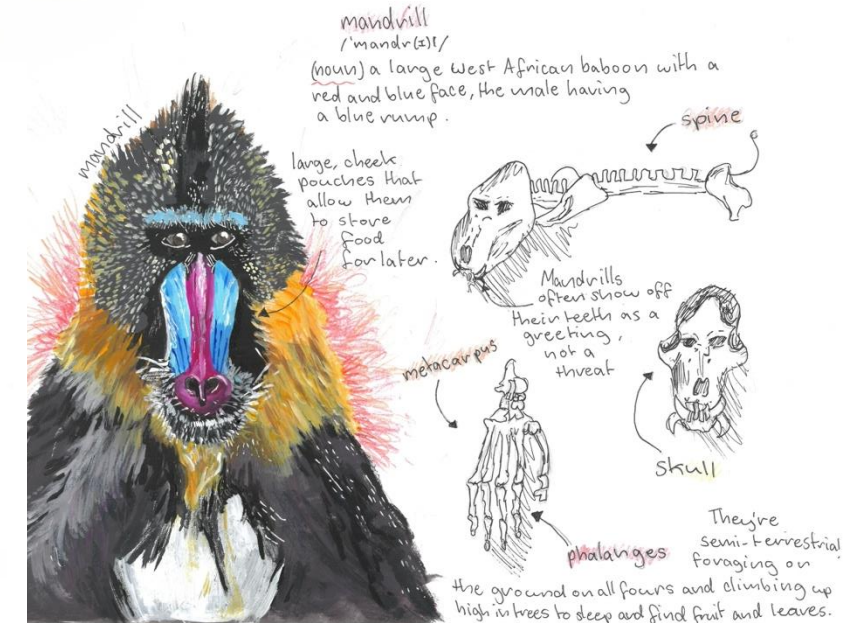 mandrill
/'mandr(ɪ)l/
(noun) a large West African baboon with a
red and blue face, the male having
a blue rump.
mandrill
large, cheek
pouches that
allow them
to store
food
for later.
spine
Mandrills
often show off
their teeth as a
greeting,
not a
threat
metacarpus
skull
phalanges
They're
semi-terrestrial
foraging on
the ground on all fours and climbing up
high in trees to sleep and find fruit and leaves.